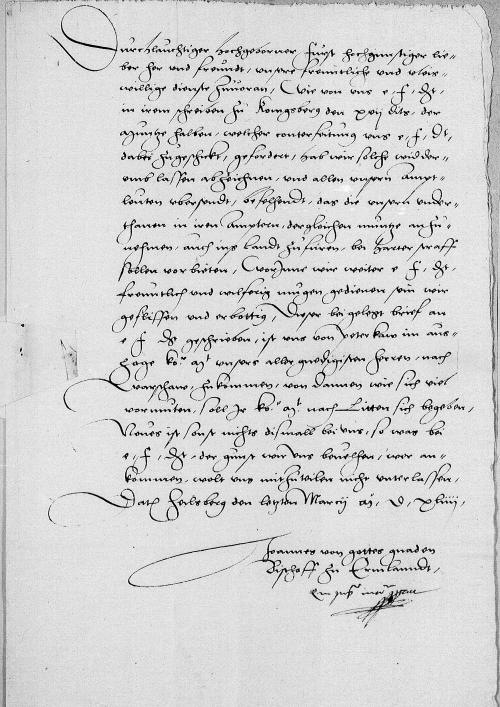 Durchlauchtiger hochgeborner furst hochgunstiger lie=
ber her und freundt, unsere freuntliche und vleis=
willige dienste zuvoran, Wie von uns e. f. dt.
in irem schreiben zu Konigsberg den xvij dits, der
Muntze halben, welcher conterfectung uns e. f. dt.
dabei zugeschickt, gefordert, hab wir solche widder=
umb lassen abzeichnen, und allen unsern Ampt=
leuten ubersendt, befelhendt, das die unsern under=
thanen in iren Amptern, dergleichen muntze an zu=
nehmen, auch ins landt zufuren, bei harter straff
sollen vorbieten, Worinne wir weiter e. f. dt.
freuntlich und wilferig mugen gedienen sein wir
geflissen und erbottig, Dieser bei gelegt brief an
e f dt geschrieben, ist uns von Peterkaw im aus=
zoge ko: Mt unsers aller gnedigsten herren, nach
Warschaw, zukommen, von dannen wie sich viel
vormuten, soll Je ko: Mt nach Litten sich begeben,
Neues ist sonst nichts dismall bei uns, so was bei
e. f. dt. der gunst wir uns bevelhen, wer an=
kommen, wolt uns mitzuteilen nicht underlassen,
Dat Heilsberg den letzten Marcij
Joannes von gottes gnaden
Bischoff zu Ermlanndt,